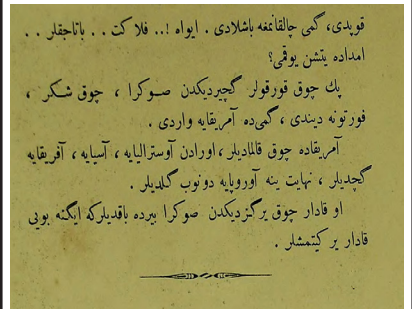 قوپدی، گمی چالقانمغه باشلادی . ایواه !.. فلاکت . . باتاجقلر . .
امداده یتشن یوقمی؟
پك چوق قورقولر گچیردیکدن صوکرا ، چوق شکر ،
فورتونه دیندی ، گمی‌ده آمریقایه واردی .
آمریقاده چوق قالمادیلر ، اورادن آوسترالیایه ، آسیایه ، آفریقایه
گچدیلر ، نهایت ینه آوروپایه دونوب گلدیلر .
او قادار چوق یر گزدیکدن صوکرا بیرده باقدیلرکه ایگنه بویی
قادار یر کیتمشلر .